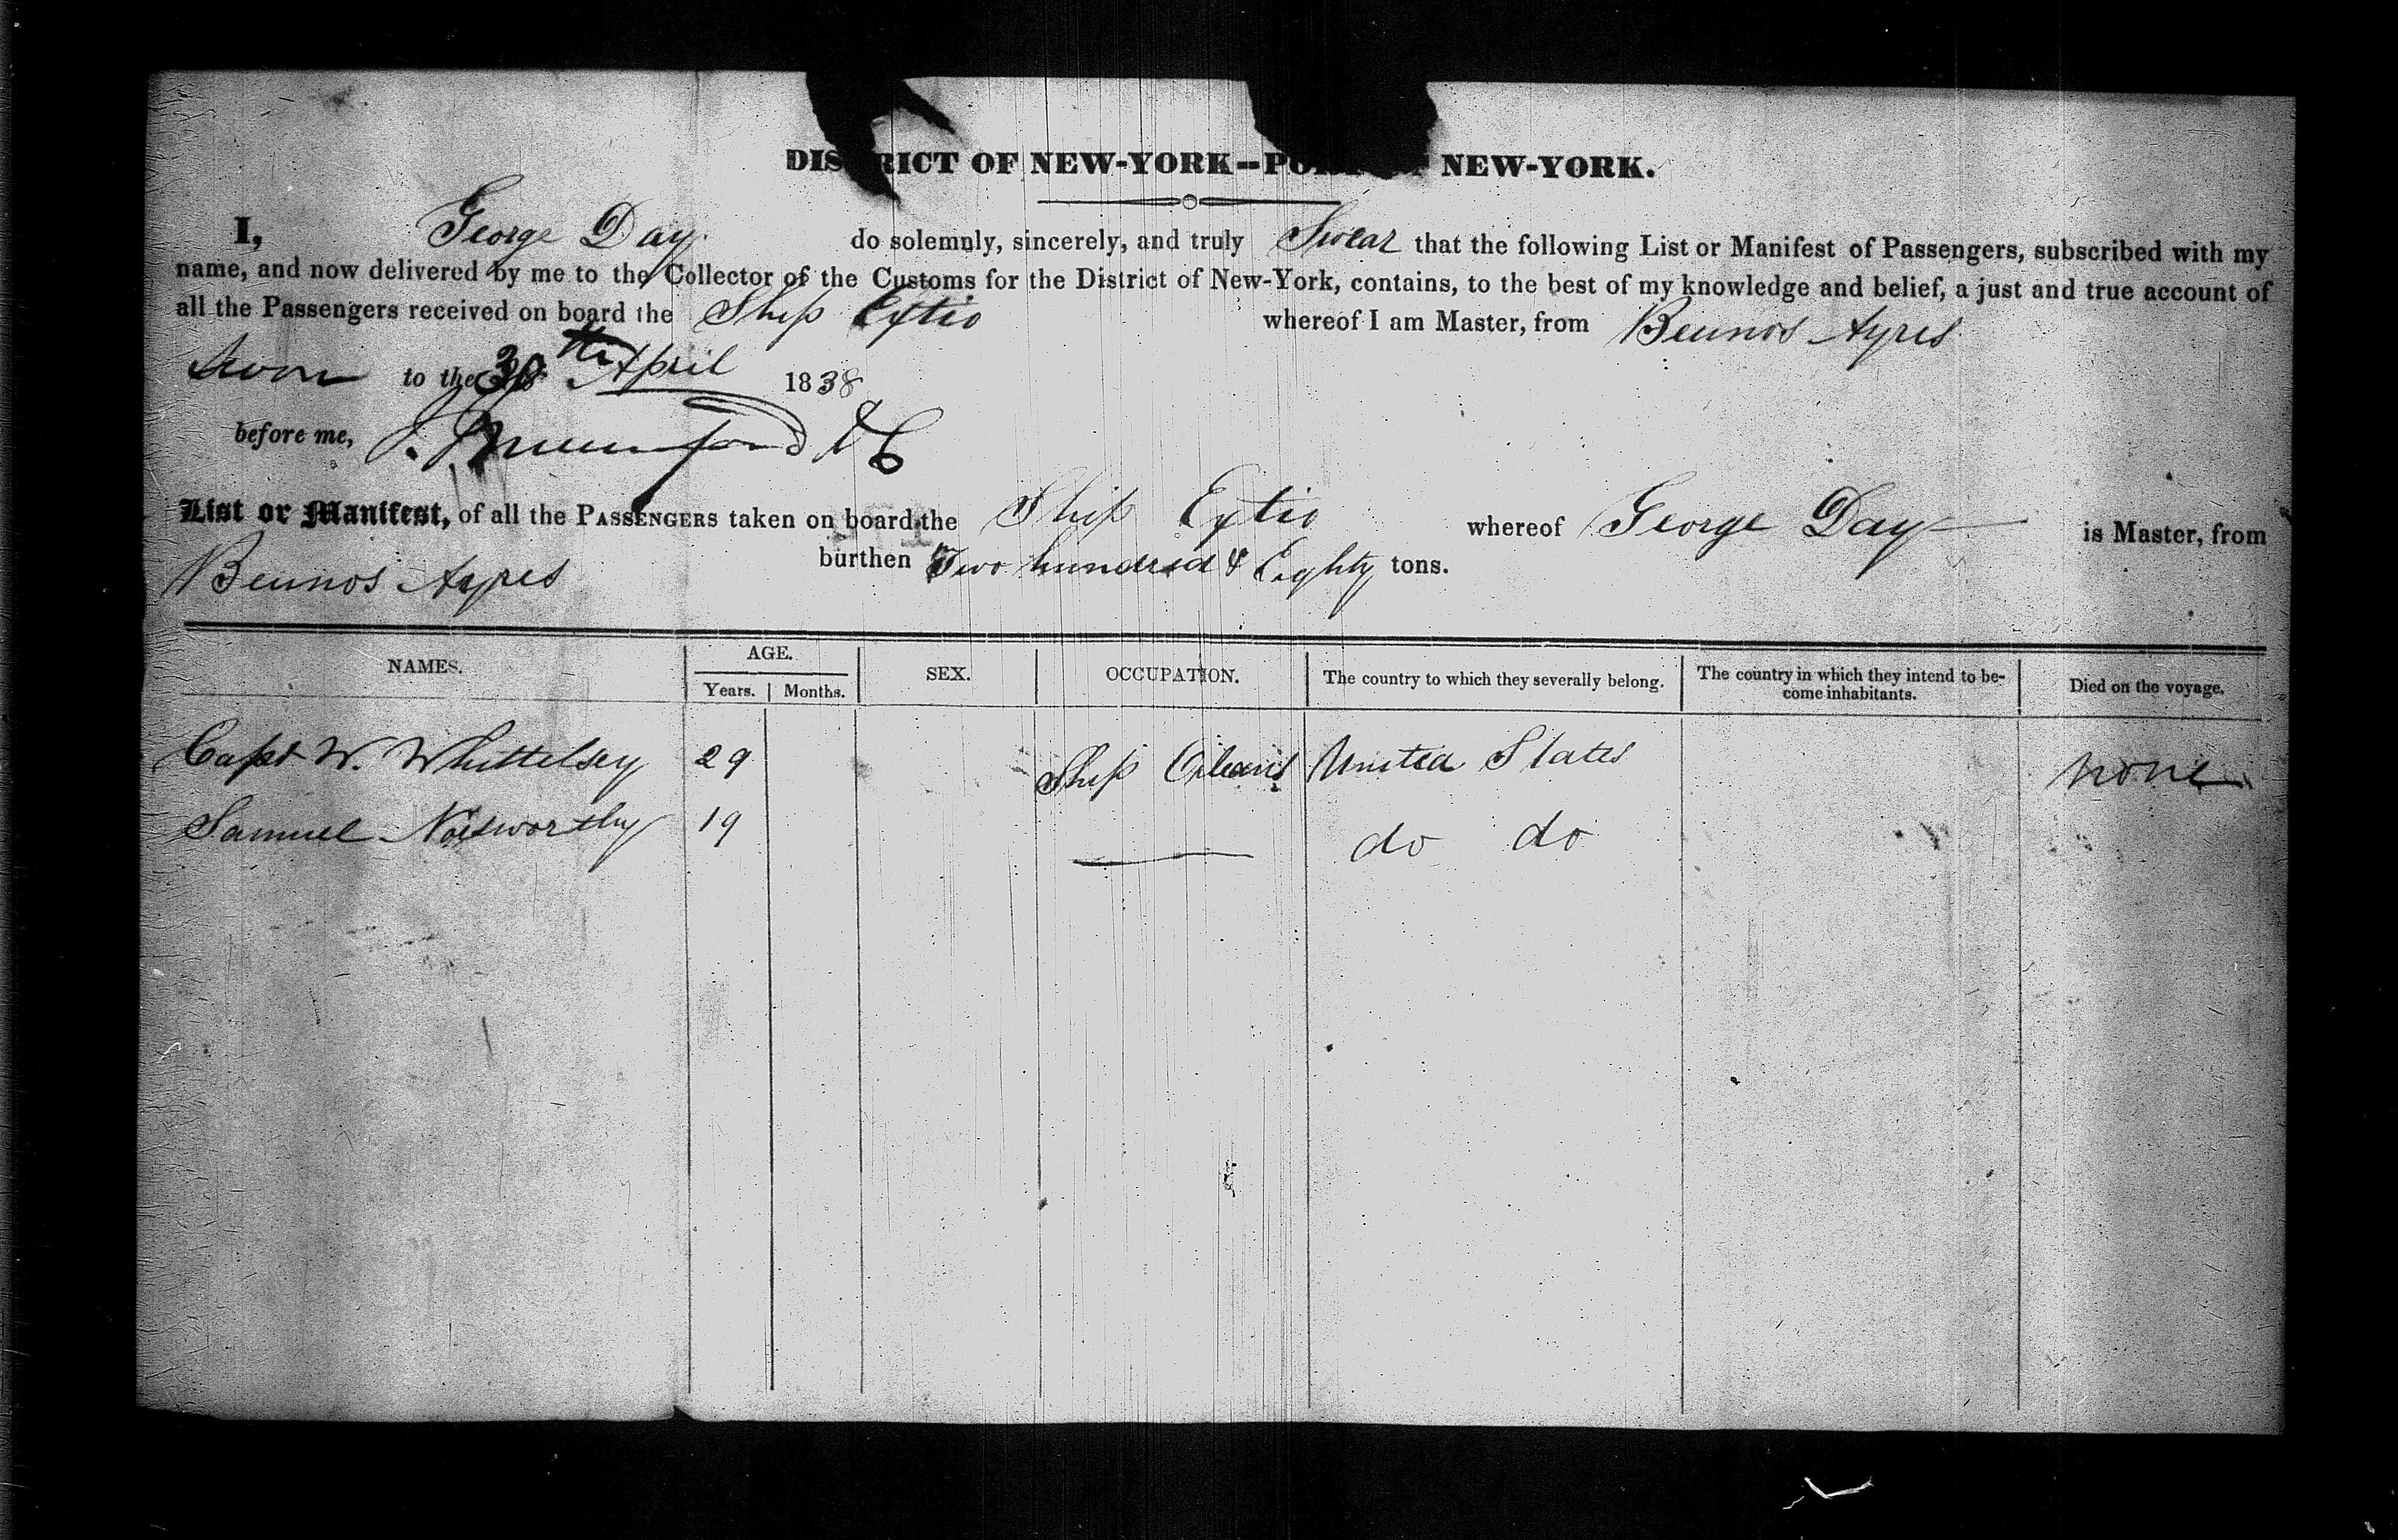 DISTRICT OF NEW-YORK--PORT OF NEW-YORK.
I, George Day. do solemnly, sincerely, and truly Swear that the following List or Manifest of Passengers, subscribed with my
name, and now delivered by me to the Collector of the Customs for the District of New-York, contains, to the best of my knowledge and belief, a just and true account of
all the Passengers received on board the Ship Extio whereof I am Master, from Beunos Ayres
Sworn to the 30th April 1838
before me,
List or Manifest, of all the PASSENGERS taken on board the Ship Extio whereof George Day is Master, from
Beunos Ayres burthen Two hundred & Eighty tons.
NAMES. AGE. Years. Months. SEX. OCCUPATION. The country to which they severally belong. The country in which they intend to be-come inhabitants. Died on the voyage.
Capt W. Whittelsey 29 Ship Orleans United States none
Samuel Nosworthy 19 do do